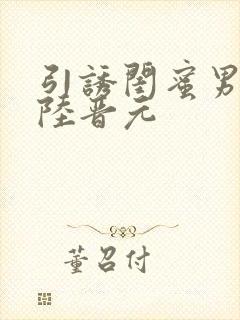 引誘閨蜜男
陸晋元
董召付